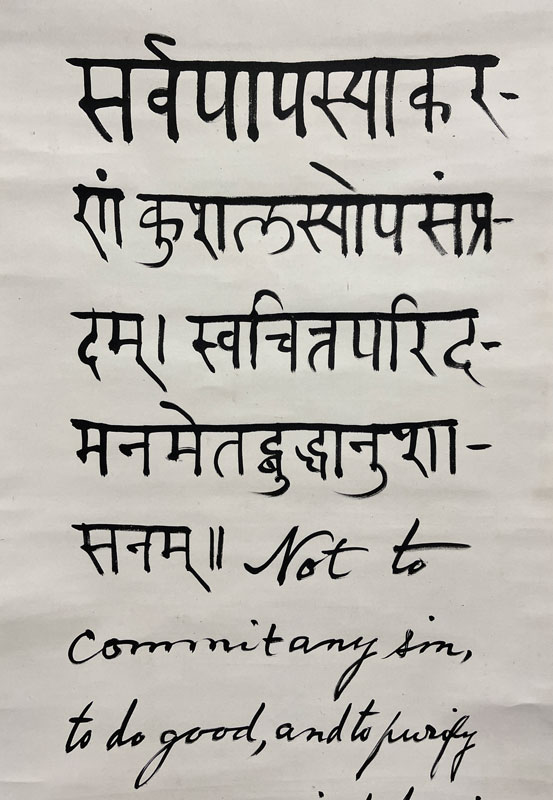 सर्वपापस्याकर-
णं कुशलस्योपसंप्र-
दम्। स्वचित्तपरिद-
मनमेतद्बुद्धानुशा-
सनम्॥ Not to
commit any sin,
to do good, and to purify